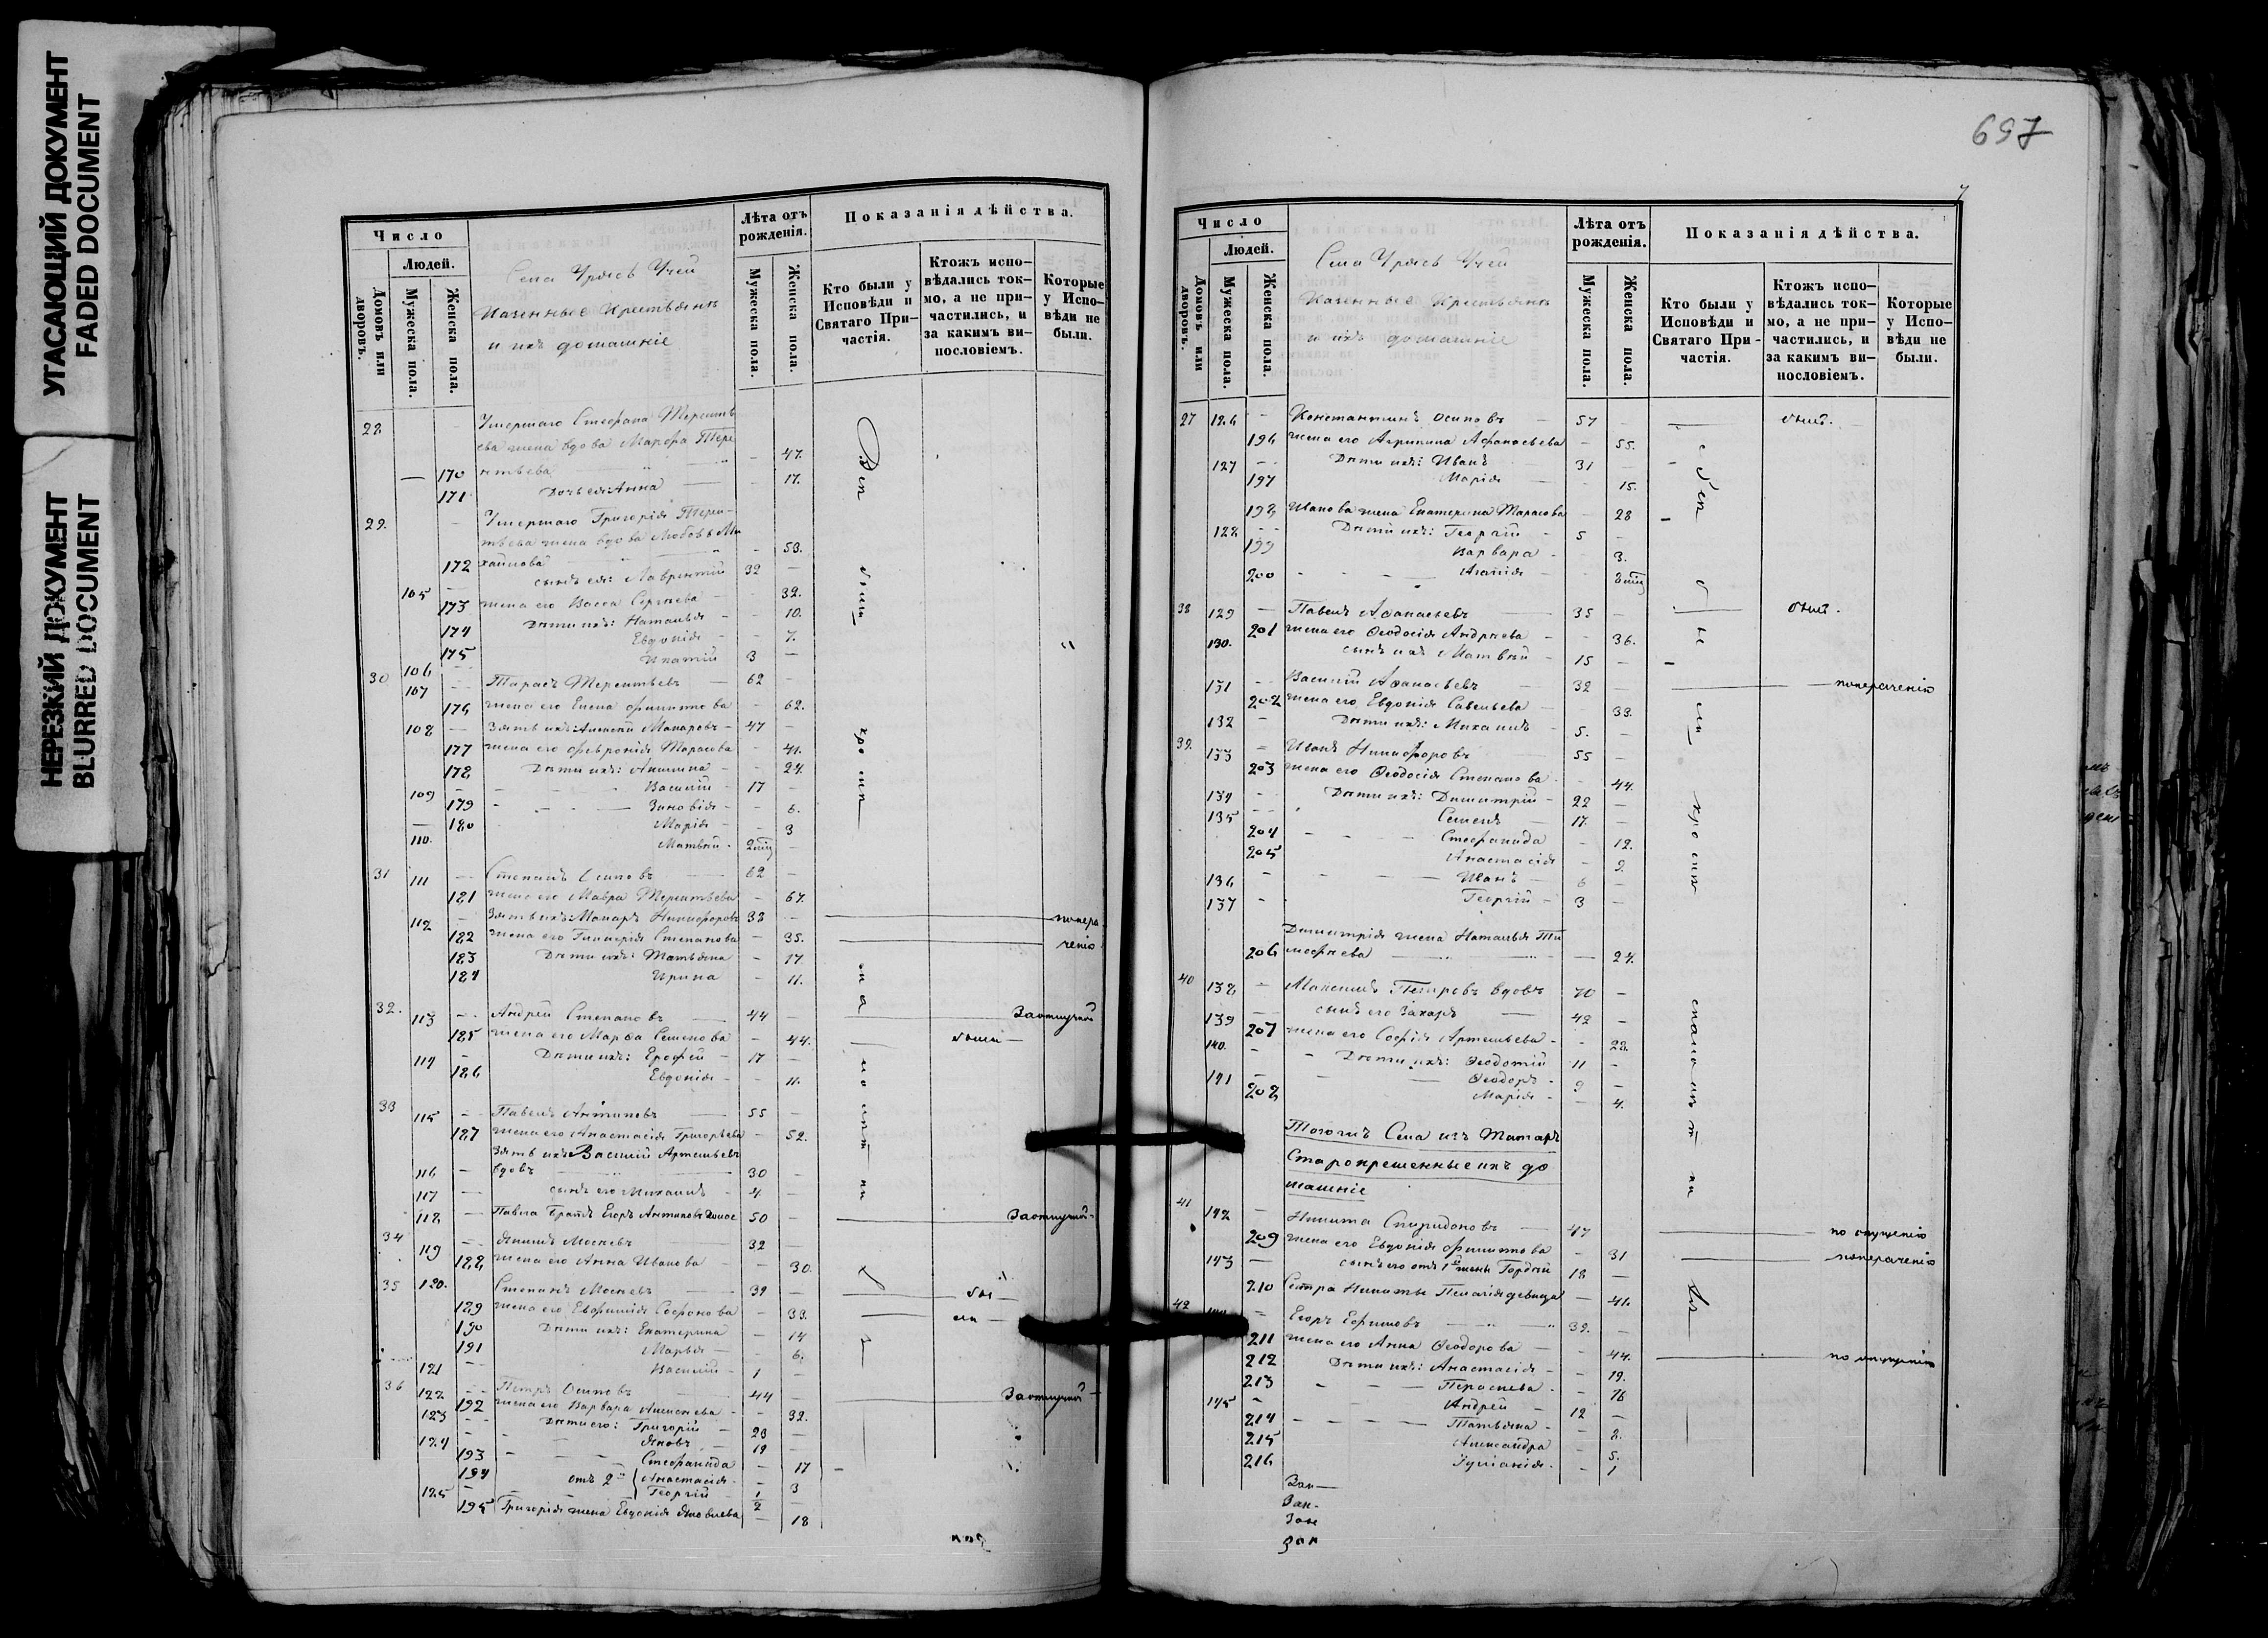 УГАСАЮЩИЙ ДОКУМЕНТ
FADED DOCUMENT
НЕРЕЗКИЙ ДОКУМЕНТ
BLURRED DOCUMENT
Число
Людей.
Домовъ или дворовъ.
Мужеска пола.
Женска пола.
Села Урясь Учей
Казенные Крестьяне
и ихъ домашніе
Лѣта отъ рожденія.
Мужеска пола.
Женска пола.
Показанія дѣйства.
Кто были у Исповѣди и Святаго Причастія.
Ктожъ исповѣдались токмо, а не причастились, и за какимъ винословіемъ.
Которые у Исповѣди не были.
28 Умершаго Стефана Терентъ
ева жена вдова Марфа Тере
170 нтьева 47.
171 Дочь ея: Анна 17.
29. Умершаго Григорія Терен-
тьева жена вдова Любовь Ми
172 хайлова 53.
105 сынъ ея: Лаврентій 32
173 жена его Васса Сергѣева 32.
174 Дѣти ихъ: Наталья 10.
175 Евдокія 7.
106 Игнатій 3
30 107 Тарасъ Терентьевъ 62
176 жена его Елена Филиппова 62.
108 Зять ихъ: Алексѣй Макаровъ 47
177 жена его Февронія Тарасова 41.
178 Дѣти ихъ: Акилина 24.
109 Василій 17
179 Зиновія 6.
180 Марія 3
110. Матвѣй 2 мѣц
31 111 Степанъ Осиповъ 62
181 жена его Мавра Терентьева 67.
112 Зять ихъ: Макаръ Никифоровъ 38 понера
182 жена его Гликерія Степанова 35. ченію
183 Дѣти ихъ: Татьяна 17
184 Ирина 11.
32. 113 Андрей Степановъ 44 Заотлучкой
185 жена его Марѳа Семенова 44. были
114 Дѣти ихъ: Ерофей 17
186 Евдокія 11.
33 115 Павелъ Антиповъ 55
187 жена его Анастасія Григорьева 52.
Зять ихъ Василій Артемьевъ
116 вдовъ 30
117 сынъ его Михаилъ 4
118 Павла братъ Егоръ Антиповъ холос 50 Заотлучкой
34 119 Якимъ Мосѣевъ 32
188 жена его Анна Иванова 30.
35 120. Степанъ Мосѣевъ 39 бы
189 жена его Евфимія Софонова 33. ли
190 Дѣти ихъ: Екатерина 14
191 Марья 6.
121 Василій 1
36 122 Петръ Осиповъ 44 Заотлучкой
192 жена его Варвара Алексѣева 32.
123 Дѣти его: Григорій 23
124 Яковъ 19
193 Стефанида 17
194 отъ 2й Анастасія 3
125 Георгій 1/2
195 Григорія жена Евдокія Яковлева 18
697
Число
Людей.
Домовъ или дворовъ.
Мужеска пола.
Женска пола.
Села Урясь Учей
Казенные Крестьяне
и ихъ домашніе
Лѣта отъ рожденія.
Мужеска пола.
Женска пола.
Показанія дѣйства.
Кто были у Исповѣди и Святаго Причастія.
Ктожъ исповѣдались токмо, а не причастились, и за какимъ винословіемъ.
Которые у Исповѣди не были.
27 126 Константинъ Осиповъ 57 былъ.
196 жена его Агрипина Афанасьева 55.
127 Дѣти ихъ: Иванъ 31
197 Марія 15.
198 Иванова жена Екатерина Тарасова 28
128 Дѣти ихъ: Георгій 5
199 Варвара 3.
200 Агапія 8 мѣц
38 129 Павелъ Аѳанасьевъ 35 былъ.
201 жена его Ѳеодосія Андреева 36.
130. сынъ ихъ Матвѣй 15
131 Василій Аѳанасьевъ 32 понераченію
202 жена его Евдокія Савельева 33.
132 Дѣти ихъ: Михаилъ 5.
39. 133 Иванъ Никифоровъ 55
203 жена его Ѳеодосія Степанова 44.
134 Дѣти ихъ: Димитрій 22
135 Семенъ 17.
204 Стефанида 12.
205 Анастасія 9.
136 Иванъ 6
137 Георгій 3
Димитрія жена Наталья Ти
206 мофеева 24.
40 138 Максимъ Петровъ вдовъ 70
139 сынъ его Захаръ 42
207 жена его Софія Артемьева 28.
140. Дѣти ихъ: Ѳеодотій 11
141 Ѳеодоръ 9
208 Марія 4.
Тогожъ Села изъ Татаръ
Старокрещенные ихъ до
машніе
41 142 Никита Спиридоновъ 47 по опущенію
209 жена его Евдокія Филиппова 31 понераченію
143 сынъ его отъ 1й жены Гордѣй 18
210 Сестра Никиты Пелагія девица 41.
42 144 Егоръ Ефимовъ 39.
211 жена его Анна Ѳеодорова 44. по опущенію
212 Дѣти ихъ: Анастасія 19.
213 Параскева 16
145 Андрей 12
214 Татьяна 8.
215 Александра 5.
216 Іуліанія 1